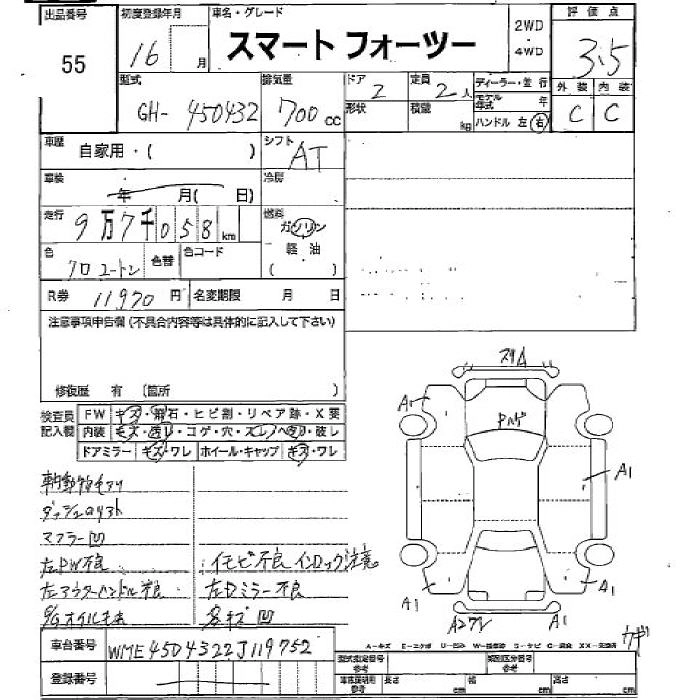 出品番号 初度登録年月 車名・グレード 2WD 4WD 評価点
55 16 月 スマート フォーツー 3.5
型式 排気量 ドア 定員 ディーラー・並行 外装 内装
GH- 450432 700 cc 2 2 人 モデル年式 年 C C
形状 積載 kg ハンドル 左 右
車歴 自家用・( ) シフト AT
車検 年 月( 日) 冷房
走行 9万7千058 km 燃料 ガソリン
軽油
( )
色 クロ ユートン 色替 色コード
R券 11970 円 名変期限 月 日
注意事項申告欄(不具合内容等は具体的に記入して下さい)
修復歴 有 (箇所 )
検査員記入欄 FW キズ・飛石・ヒビ割・リペア跡・X要
内装 キズ・汚レ・コゲ・穴・スレ・ヘタリ・破レ
ドアミラー キズ・ワレ ホイール・キャップ キズ・ワレ
スリム
A1
Pハゲ
A1
A1 A1
A1
車内動物毛アリ
マフラー凹
左PW不良 イモビ不良 インロック注意
左アウターハンドル不良 左Dミラー不良
E/Gオイルモレ 各キズ凹
車台番号 WME4504322J119752
A-キズ E-エクボ U-凹ミ
登録番号 型式指定番号 参考 類別区分番号 参考
車庫証明用 参考 長さ cm 幅 cm 高さ cm